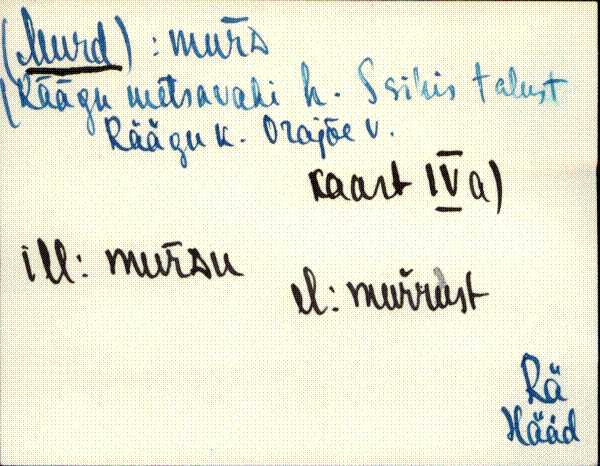 (Murd) : mur̄s
(Räägu metsavahi h. Ssihis talust
Räägu k. Orajõe v.
kaart IVa)
ill: mur̄su
el: mur̆rust
Rä
Hääd